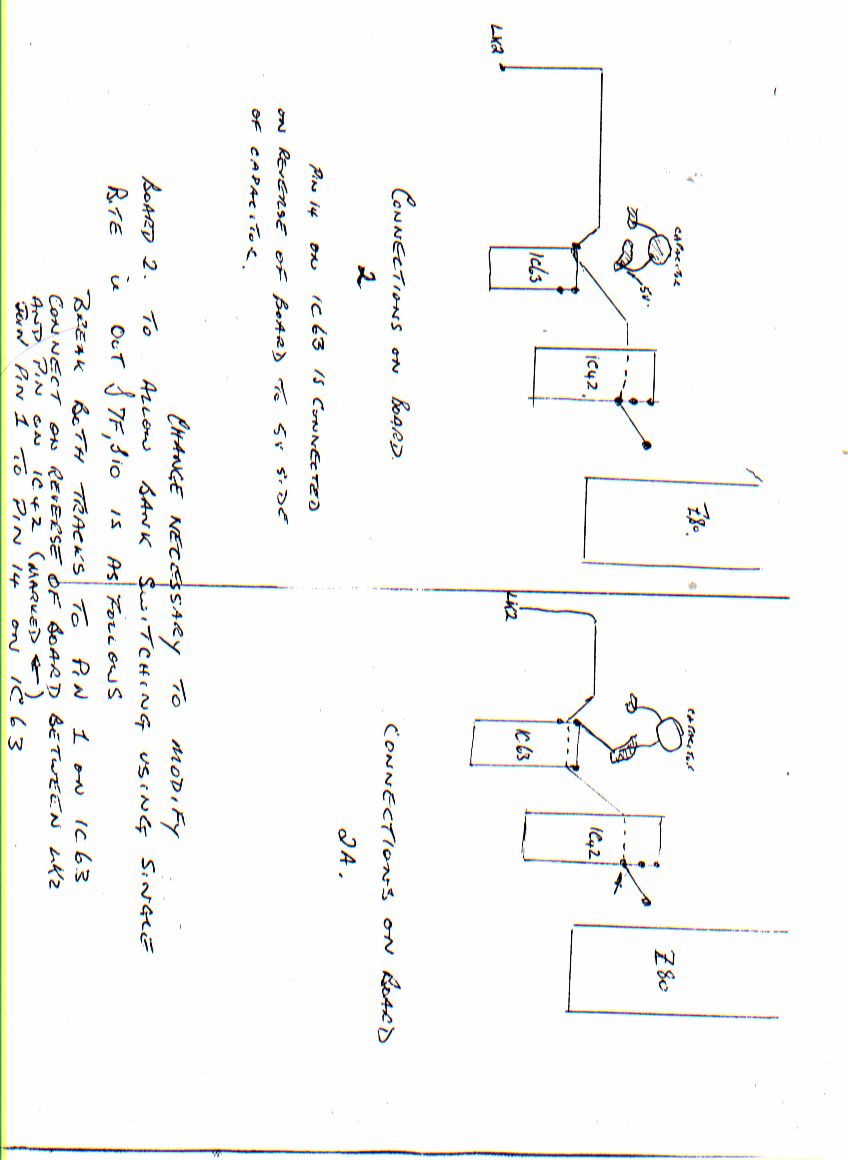 LK2
CAPACITOR
5V.
IC63
IC42.
Z80.
CONNECTIONS ON BOARD.
2
PIN 14 ON IC63 IS CONNECTED
ON REVERSE OF BOARD TO 5V SIDE
OF CAPACITOR.
LK2
CAPACITOR
IC63
IC42
Z80
CONNECTIONS ON BOARD
2A.
CHANGE NECESSARY TO MODIFY
BOARD 2. TO ALLOW BANK SWITCHING USING SINGLE
BITE ie OUT &7F,&10 IS AS FOLLOWS
BREAK BOTH TRACKS TO PIN 1 ON IC63
CONNECT ON REVERSE OF BOARD BETWEEN LK2
AND PIN ON IC42 (MARKED ←)
JOIN PIN 1 TO PIN 14 ON IC63